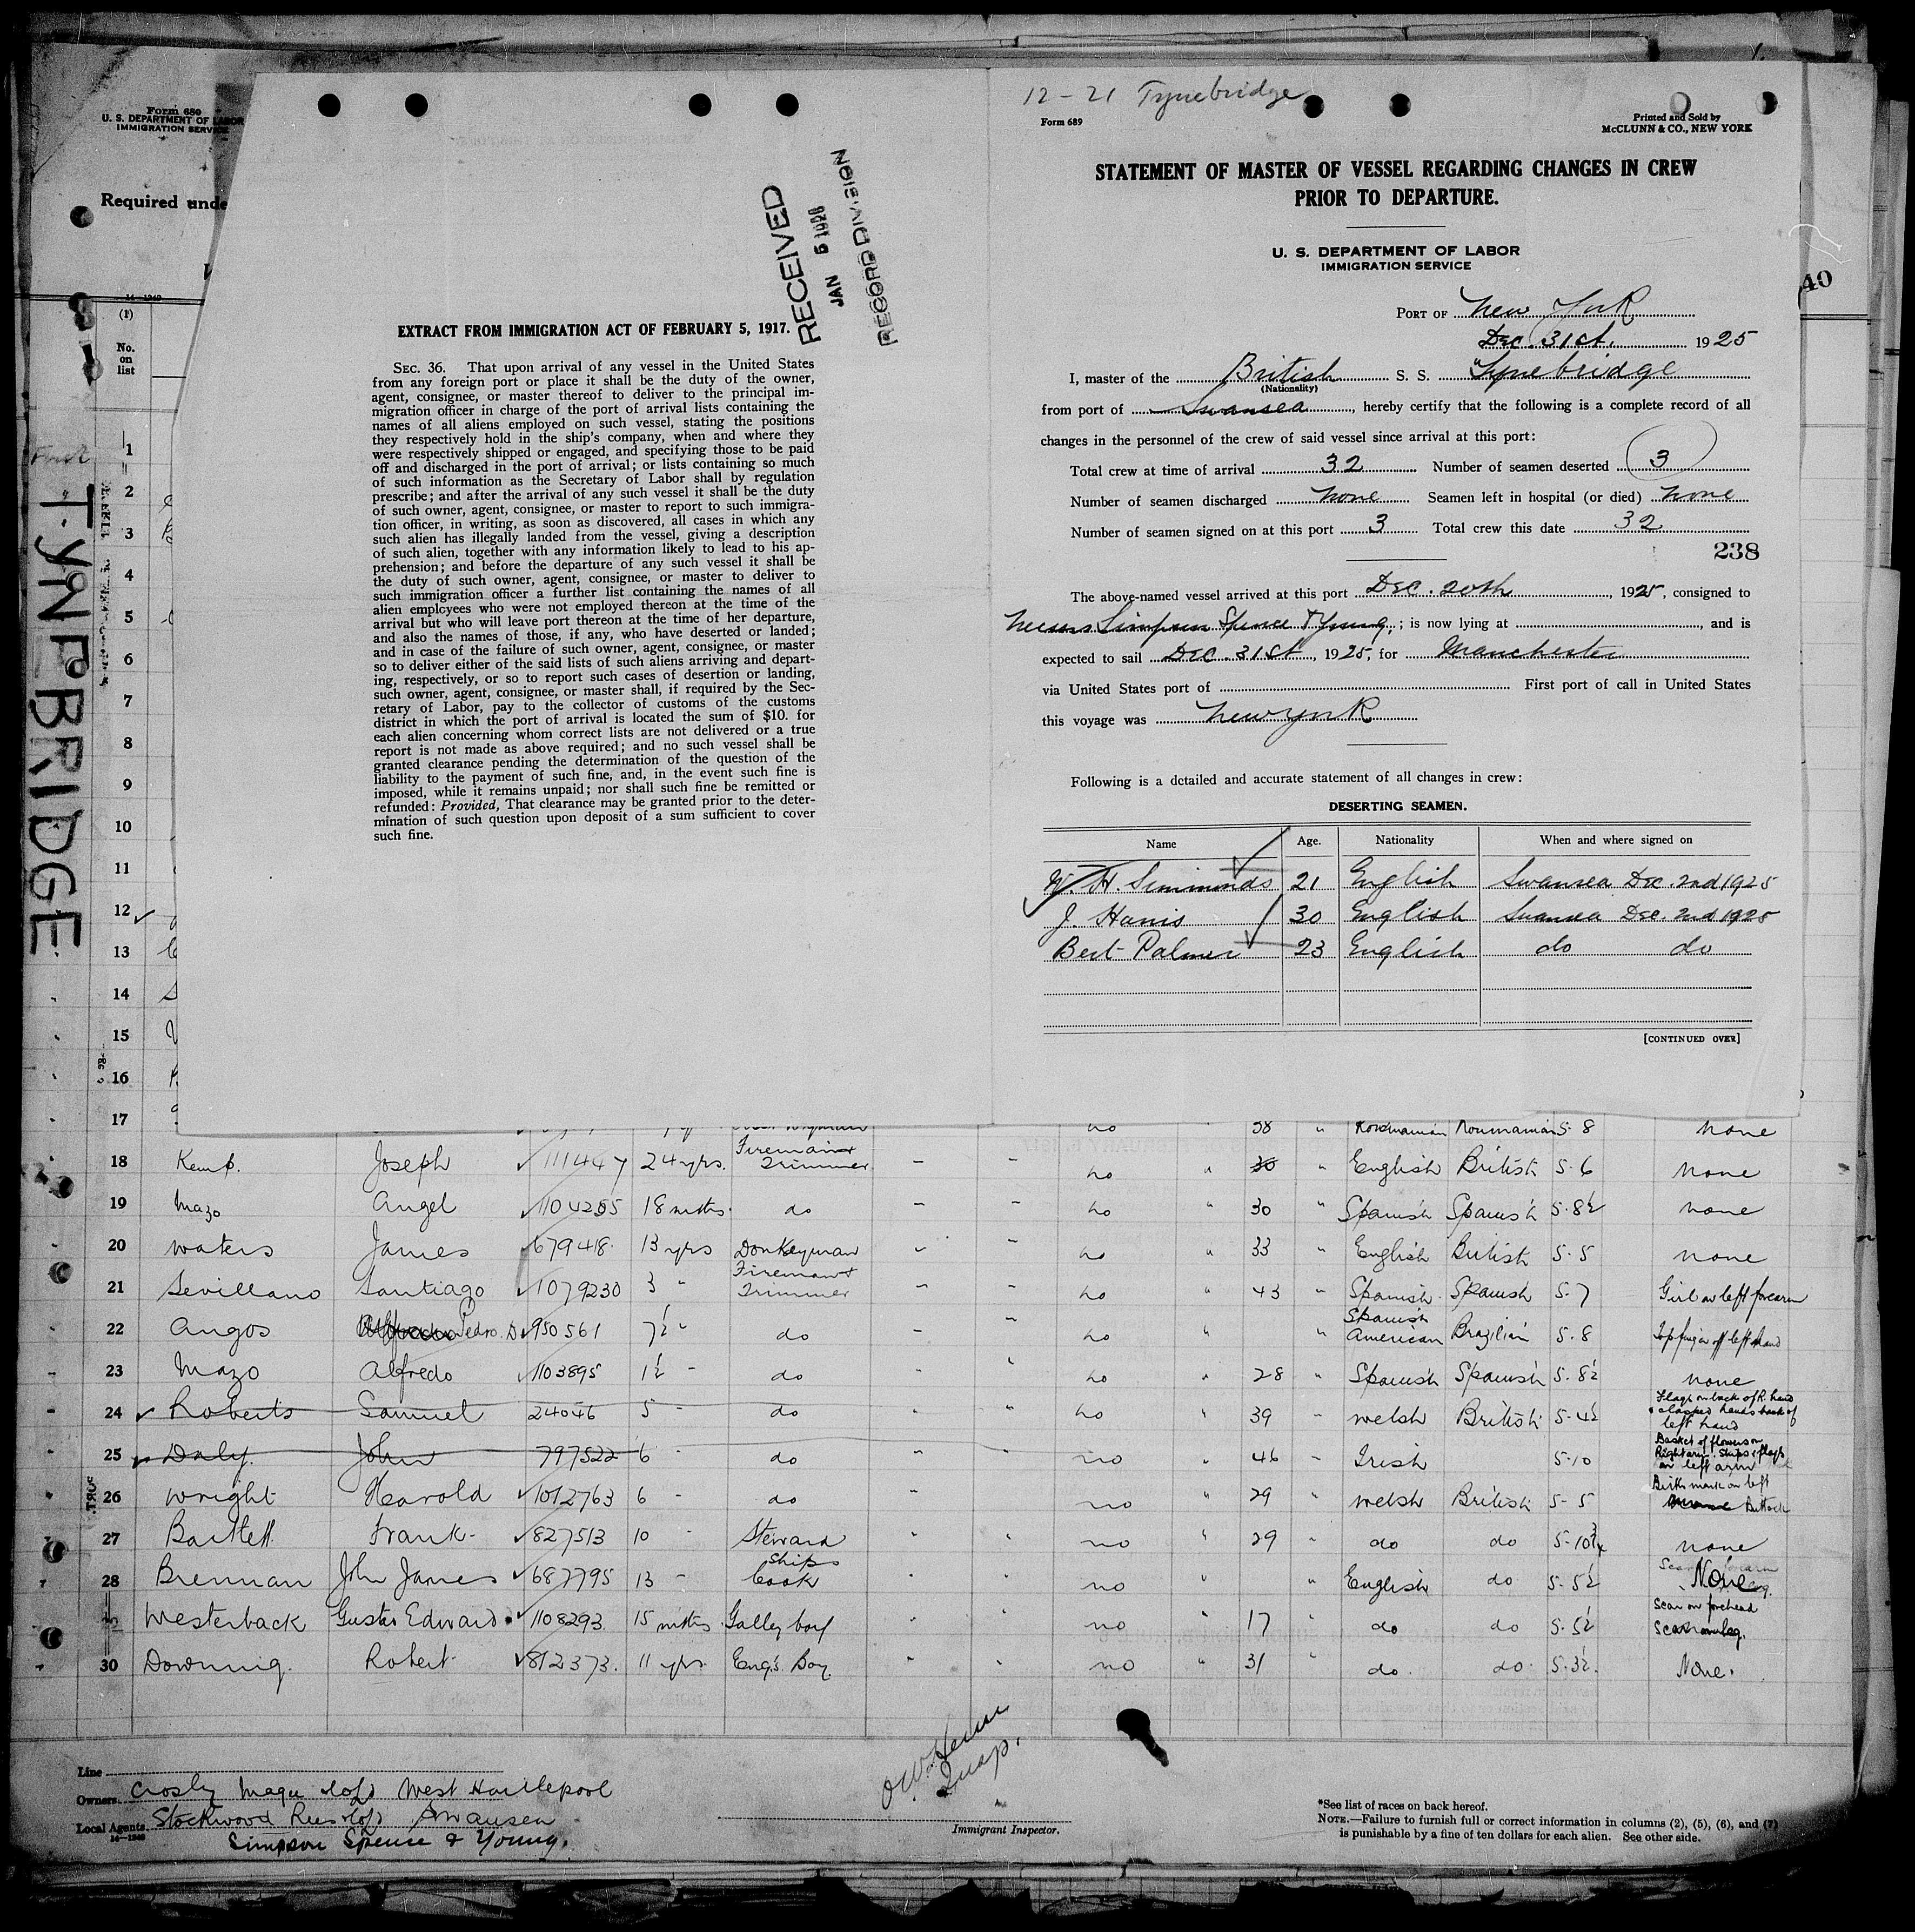 Form 680
U. S. DEPARTMENT OF LABOR
IMMIGRATION SERVICE
Required unde
14—1240
(1)
No.
on
list
TYNEBRIDGE
40
RECEIVED
JAN 5 1926
RECORD DIVISION
EXTRACT FROM IMMIGRATION ACT OF FEBRUARY 5, 1917.
SEC. 36. That upon arrival of any vessel in the United States
from any foreign port or place it shall be the duty of the owner,
agent, consignee, or master thereof to deliver to the principal im-
migration officer in charge of the port of arrival lists containing the
names of all aliens employed on such vessel, stating the positions
they respectively hold in the ship's company, when and where they
were respectively shipped or engaged, and specifying those to be paid
off and discharged in the port of arrival; or lists containing so much
of such information as the Secretary of Labor shall by regulation
prescribe; and after the arrival of any such vessel it shall be the duty
of such owner, agent, consignee, or master to report to such immigra-
tion officer, in writing, as soon as discovered, all cases in which any
such alien has illegally landed from the vessel, giving a description
of such alien, together with any information likely to lead to his ap-
prehension; and before the departure of any such vessel it shall be
the duty of such owner, agent, consignee, or master to deliver to
such immigration officer a further list containing the names of all
alien employees who were not employed thereon at the time of the
arrival but who will leave port thereon at the time of her departure,
and also the names of those, if any, who have deserted or landed;
and in case of the failure of such owner, agent, consignee, or master
so to deliver either of the said lists of such aliens arriving and depart-
ing, respectively, or so to report such cases of desertion or landing,
such owner, agent, consignee, or master shall, if required by the Sec-
retary of Labor, pay to the collector of customs of the customs
district in which the port of arrival is located the sum of $10. for
each alien concerning whom correct lists are not delivered or a true
report is not made as above required; and no such vessel shall be
granted clearance pending the determination of the question of the
liability to the payment of such fine, and, in the event such fine is
imposed, while it remains unpaid; nor shall such fine be remitted or
refunded: Provided, That clearance may be granted prior to the deter-
mination of such question upon deposit of a sum sufficient to cover
such fine.
12-21 Tynebridge
Form 689
Printed and Sold by
McCLUNN & CO., NEW YORK
STATEMENT OF MASTER OF VESSEL REGARDING CHANGES IN CREW
PRIOR TO DEPARTURE.
U. S. DEPARTMENT OF LABOR
IMMIGRATION SERVICE
PORT OF New York
Dec. 31st. 1925
I, master of the British S. S. "Tynebridge
(Nationality)
from port of Swansea, hereby certify that the following is a complete record of all
changes in the personnel of the crew of said vessel since arrival at this port:
Total crew at time of arrival 32 Number of seamen deserted 3
Number of seamen discharged none Seamen left in hospital (or died) none
Number of seamen signed on at this port 3 Total crew this date 32
238
The above-named vessel arrived at this port Dec. 20th, 1925, consigned to
Messrs Simpson Spence & Young; is now lying at , and is
expected to sail Dec. 31st, 1925, for Manchester
via United States port of First port of call in United States
this voyage was New York
Following is a detailed and accurate statement of all changes in crew:
DESERTING SEAMEN.
Name Age. Nationality When and where signed on
W. H. Simmonds 21 English Swansea Dec. 2nd 1925
J. Harris 30 English Swansea Dec. 2nd 1925
Bert Palmer 23 English do do
[CONTINUED OVER]
1
2
3
4
5
6
7
8
9
10
11
12
13
14
15
16
17 no 38 " Roumanian Roumanian 5-8 none
18 Kemp. Joseph 111447 24 yrs. Fireman & Trimmer - - no " 30 " English British 5-6 none
19 Mazo Angel 1104255 18 mths. do - - no " 30 " Spanish Spanish 5-8½ none
20 Waters James 679418 13 yrs Donkeyman - - no " 33 " English British 5-5 none
21 Sevillano Santiago 1079230 3 " Fireman & Trimmer - - no " 43 " Spanish Spanish 5-7 Girl on left forearm
22 Angos Pedro. D 950561 7½ " do - - no " " Spanish American Brazilian 5-8 Top finger off left hand
23 Mazo Alfredo 1103895 1½ - do - " no " 28 " Spanish Spanish 5-8½ none
24 Roberts Samuel 24046 5 - do " " no " 39 " Welsh British 5-4½ Flags on back of R. hand & clasped hands back of left hand
25 Daly. John 797522 6 - do no " 46 - Irish 5-10 Basket of flowers on Right arm. Ships & flags on left arm
26 Wright Harold 1012763 6 - do " no " 29 " Welsh British 5-5 Birth mark on left Buttock
27 Bartlett Frank 827513 10 - Steward " " no " 29 " do do 5-10¾ none
28 Brennan John James 687795 13 - Ships Cook " " no " " English do 5-5½ None
Westerback Gustav Edward 1108293 15 mths. Galley boy " " no " 17 " do do 5-5½ Scar on forehead Scar on leg.
30 Downing. Robert 812373. 11 yrs. Eng's. Boy " " no " 31 " do. do. 5-3½. None.
Line
Owners Crosby Magee & Co West Hartlepool
Local Agents Stockwood Rees & Co Swansea
14—1240
Simpson Spence & Young.
Insp.
Immigrant Inspector.
*See list of races on back hereof.
NOTE.—Failure to furnish full or correct information in columns (2), (5), (6), and (7)
is punishable by a fine of ten dollars for each alien. See other side.